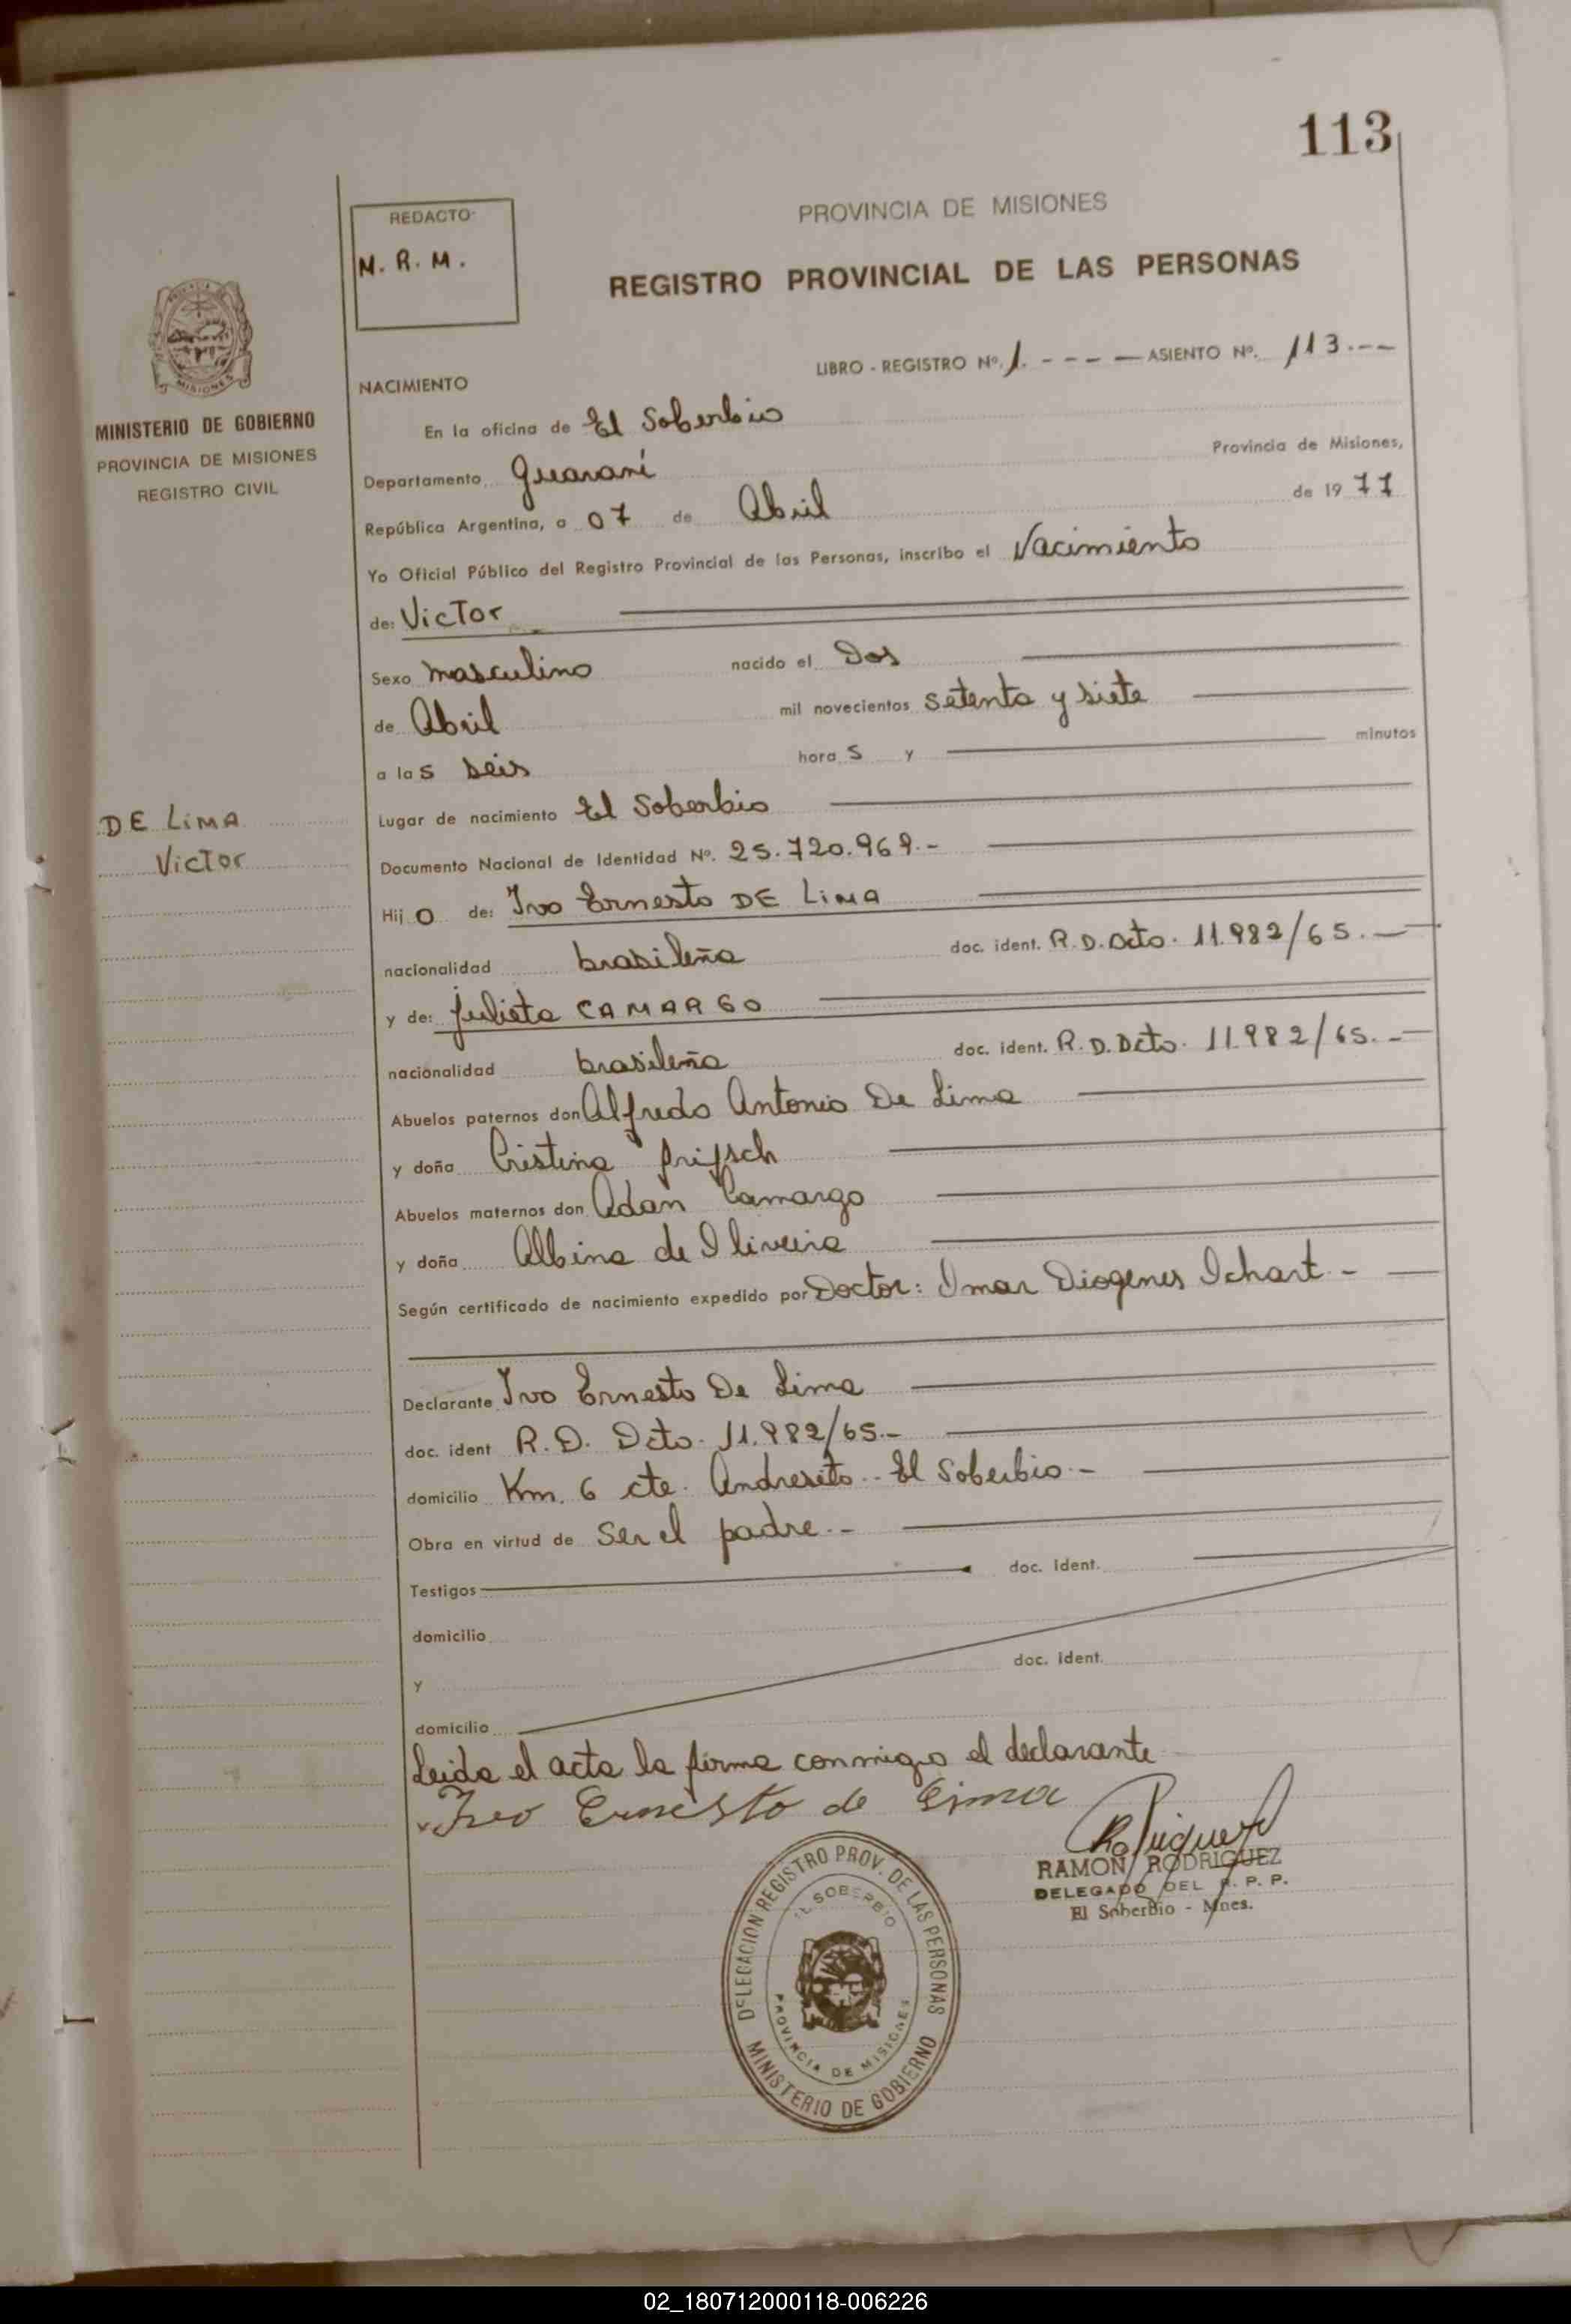 113
REDACTO
M. R. M.
PROVINCIA DE MISIONES
REGISTRO PROVINCIAL DE LAS PERSONAS
MISIONES
MINISTERIO DE GOBIERNO
PROVINCIA DE MISIONES
REGISTRO CIVIL
LIBRO - REGISTRO Nº. 1. - - - - ASIENTO Nº. 113.--
NACIMIENTO
En la oficina de El Soberbio
Departamento Guaraní Provincia de Misiones,
República Argentina, a 07 de Abril de 1977
Yo Oficial Público del Registro Provincial de las Personas, inscribo el Nacimiento
de: Victor
Sexo masculino nacido el Dos
de Abril mil novecientos setenta y siete
a las seis hora s y minutos
Lugar de nacimiento El Soberbio
DE LiMA
Victor
Documento Nacional de Identidad Nº. 25.720.969.-
Hij o de: Ivo Ernesto DE LiMA
nacionalidad brasileña doc. ident. R.D. Dcto. 11.982/65.-
y de: Julieta CAMARGO
nacionalidad brasileña doc. ident. R.D. Dcto. 11.982/65.-
Abuelos paternos don Alfredo Antonio De Lima
y doña Cristina
Abuelos maternos don Adan Camargo
y doña Albina de Oliveira
Según certificado de nacimiento expedido por Doctor: Omar Diogenes Ichart -
Declarante Ivo Ernesto De Lima
doc. ident R.D. Dcto. 11.982/65.-
domicilio Km. 6 cte. Andresito - El Soberbio.-
Obra en virtud de ser el padre.-
Testigos doc. ident.
domicilio
y doc. ident.
domicilio
Leida el acta la firma conmigo el declarante
Ivo Ernesto de Lima
RAMON RODRIGUEZ
DELEGADO DEL R. P. P.
El Soberbio - Mnes.
DELEGACION REGISTRO PROV. DE LAS PERSONAS
EL SOBERBIO
PROVINCIA DE MISIONES
MINISTERIO DE GOBIERNO
02_180712000118-006226